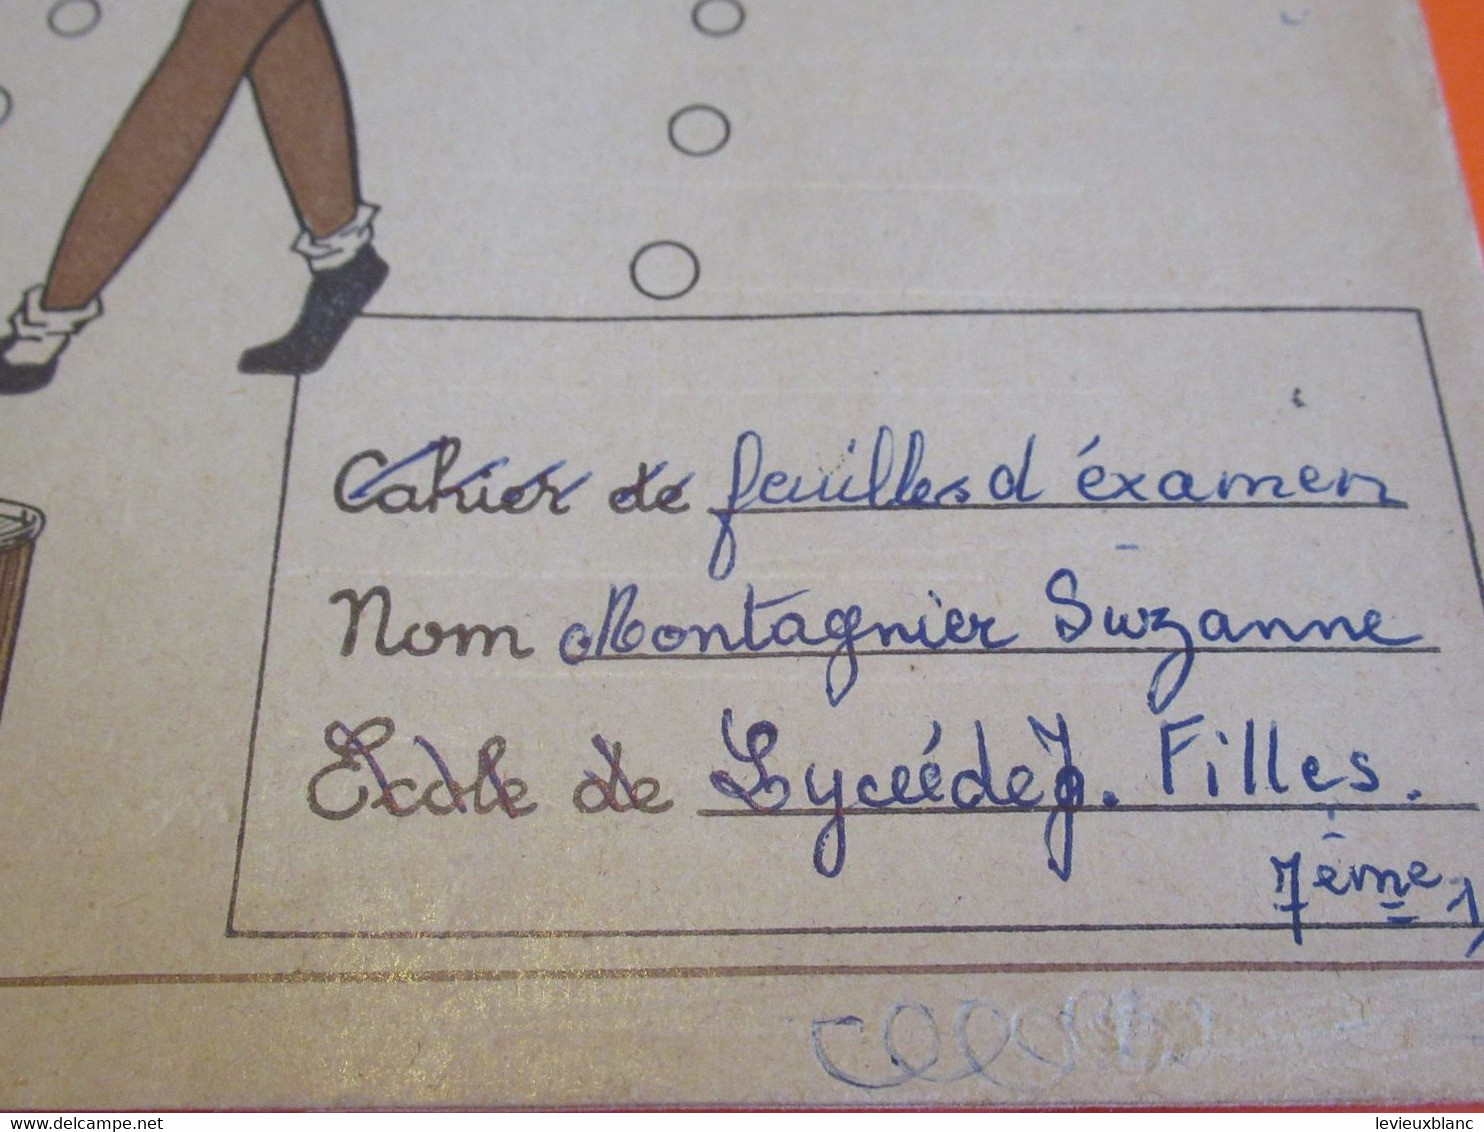 Cahier de feuilles d'éxamen
Nom Montagnier Suzanne
École de Lycée de J. Filles.
7ème
delcampe.net
levieuxblanc